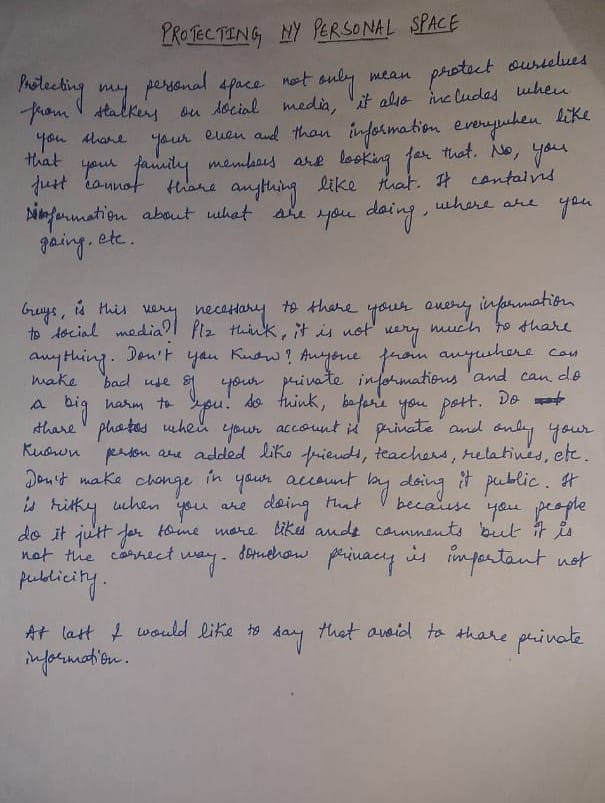 PROTECTING MY PERSONAL SPACE
Protecting my personal space not only mean protect ourselves
from stalkers on social media, it also includes when
you share your even and than information everywhen like
that your family members are looking for that. No, you
just cannot share anything like that. It contains
information about what are you doing, where are you
going. etc.
Guys, is this very necessary to share your every information
to social media?! Plz think, it is not very much to share
anything. Don't you know? Anyone from anywhere can
make bad use of your private informations and can do
a big harm to you. So think, before you post. Do
share photos when your account is private and only your
known person are added like friends, teachers, relatives, etc.
Don't make change in your account by doing it public. It
is risky when you are doing that because you people
do it just for some more likes and comments but it is
not the correct way. Somehow privacy is important not
publicity.
At last I would like to say that avoid to share private
information.